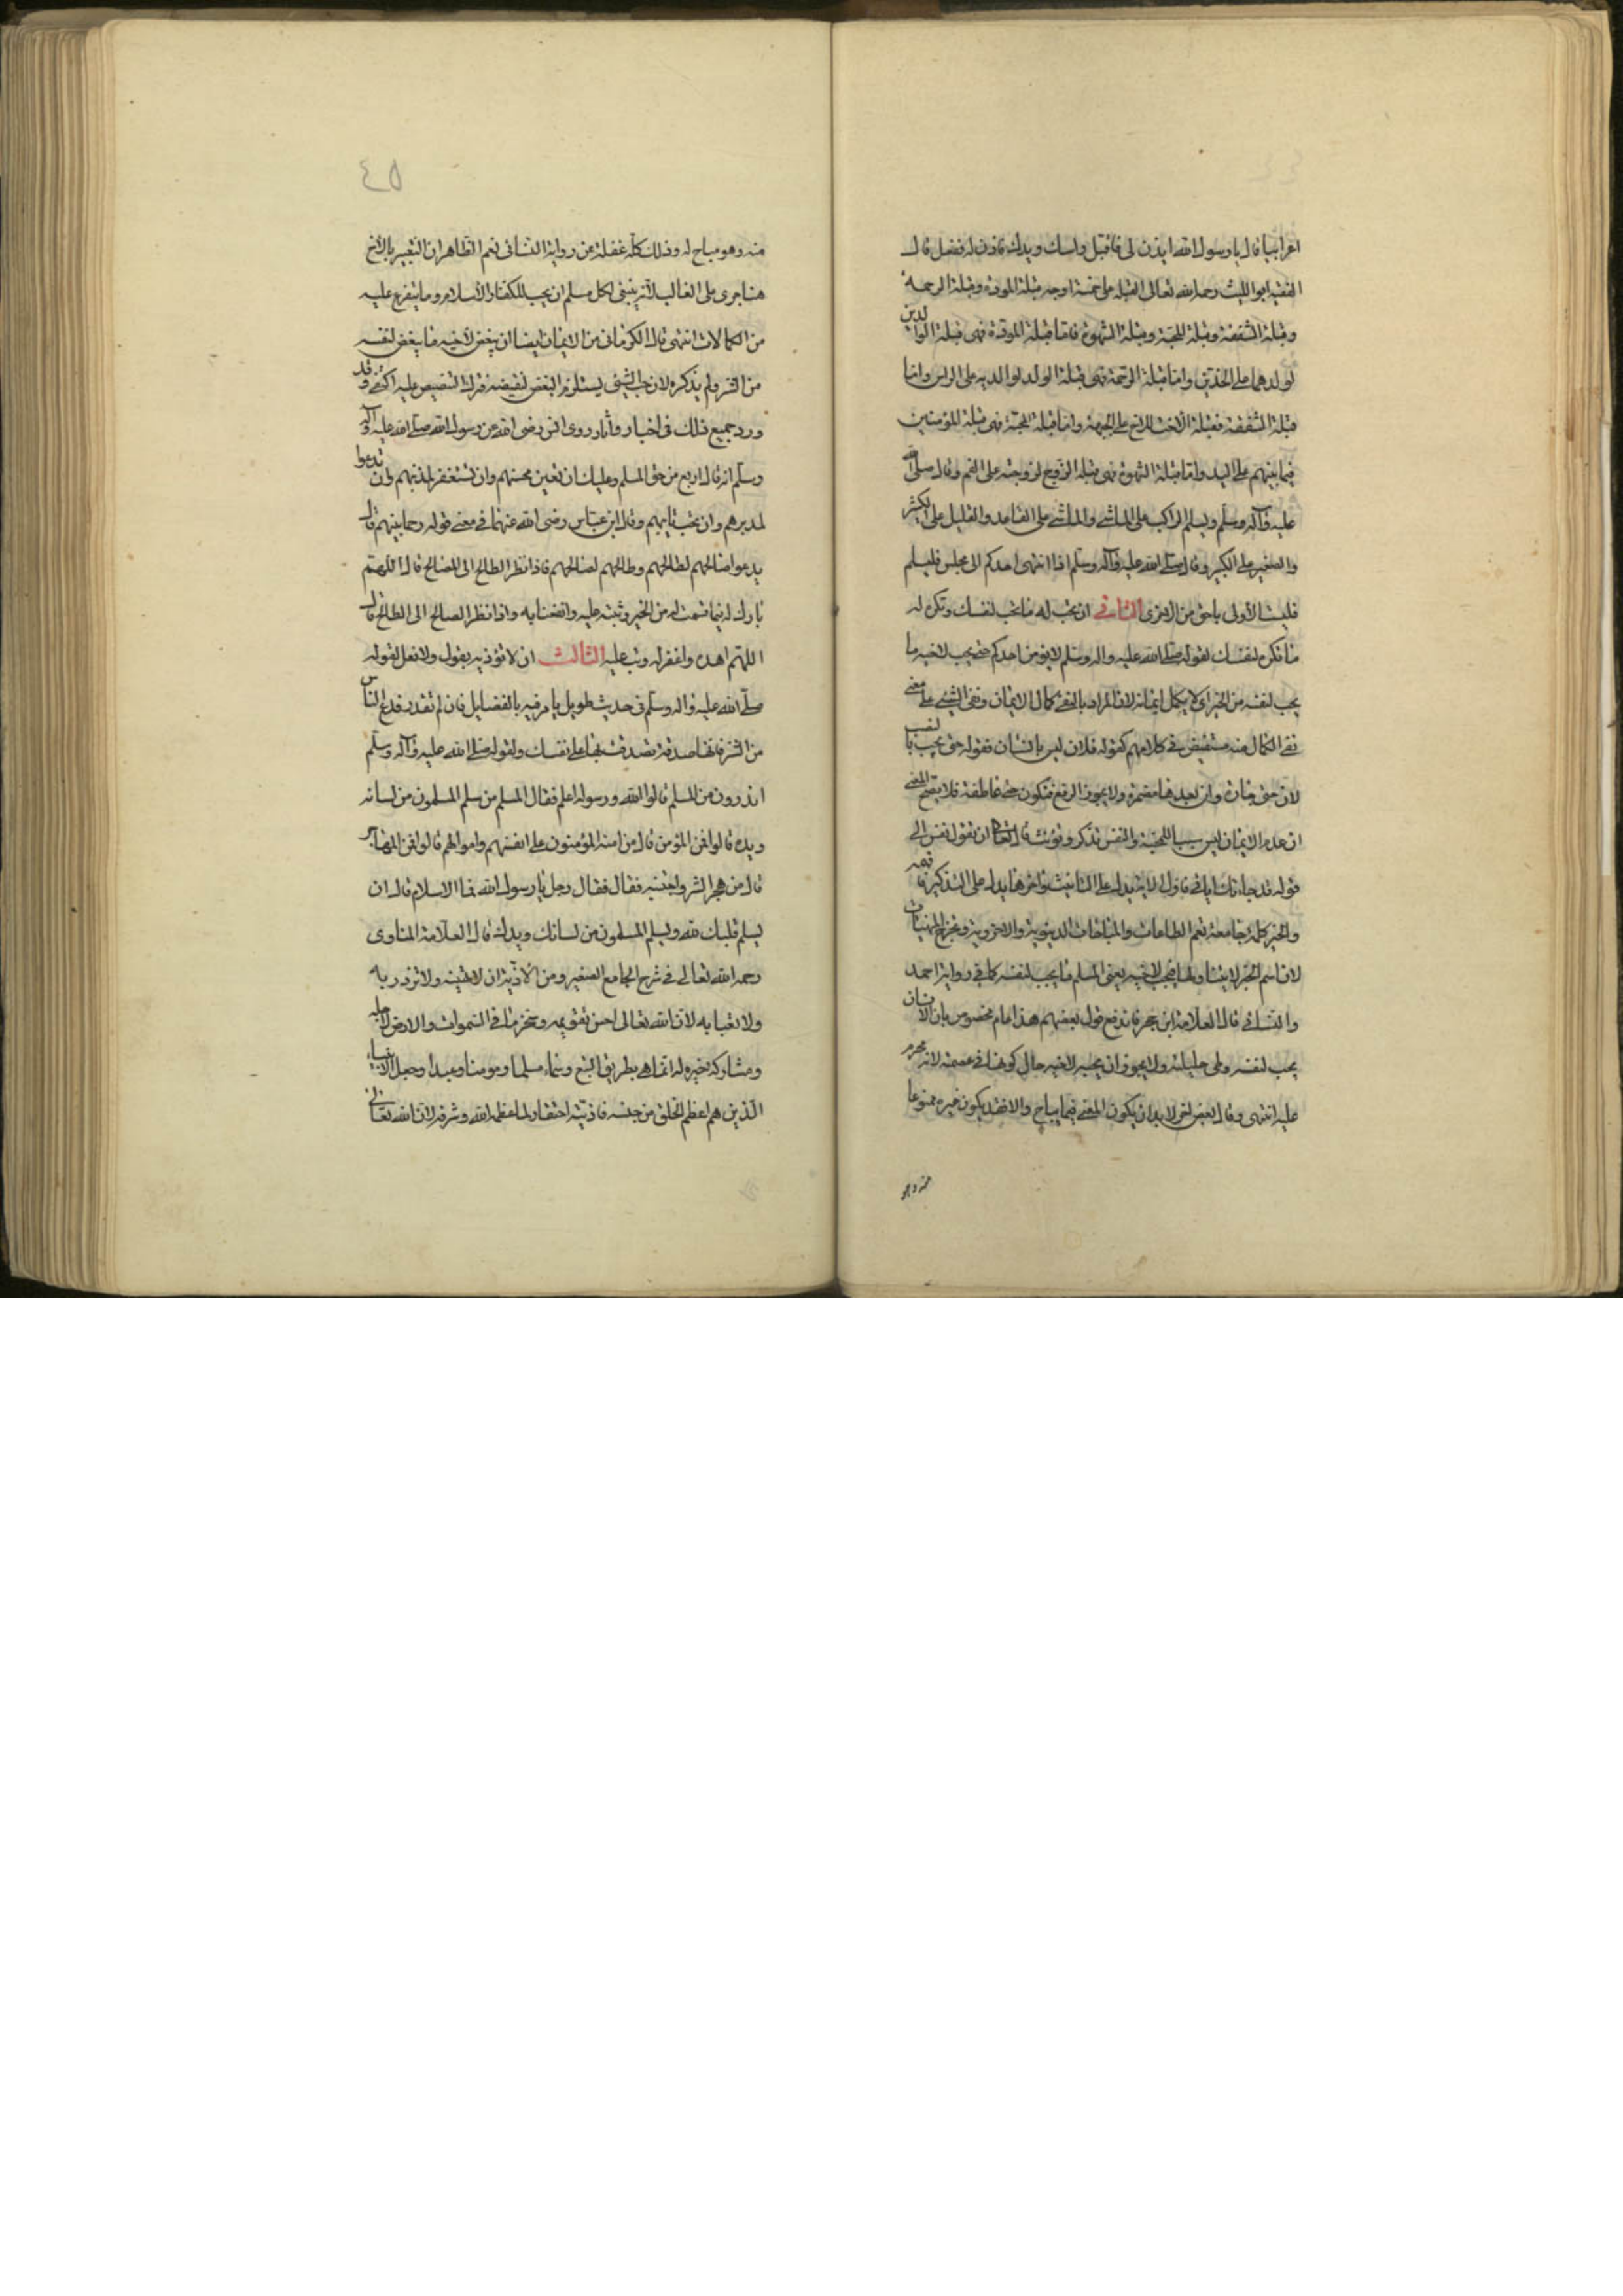 اعرابيا قال يا رسول الله ايذن لى فاقبل راسك ويديك فاذن له ففعل قال
الفقيه ابوالليث رحمه الله تعالى القبلة على خمسة اوجه قبلة المودة وقبلة الرحمة
وقبلة الشفقة وقبلة المحبة وقبلة الشهوة فاما قبلة المودة فهى قبلة الوالدين
لولدهما على الخدين واما قبلة الرحمة فهى قبلة الولد لوالديه على الراس واما
قبلة الشفقة فقبلة الاخت للاخ على الجبهة واما قبلة المحبة فهى قبلة المؤمنين
فيما بينهم على اليد واما قبلة الشهوة فهى قبلة الزوج لزوجته على الفم وقال صلى الله
عليه وآله وسلم ويسلم الراكب على الماشى والماشى على القاعد والقليل على الكثير
والصغير على الكبير وقال صلى الله عليه وآله وسلم اذا انتهى احدكم الى مجلس فليسلم
فليست الاولى باحق من الاخرى الثانى ان تحب له ما تحب لنفسك وتكره له
ما تكره لنفسك لقوله صلى الله عليه واله وسلم لا يؤمن احدكم حتى يحب لاخيه ما
يحب لنفسه من الخير اى لا يكمل ايمانه لان المراد بالنفى كمال الايمان ونفى الشىء على معنى
نفى الكمال منه مستفيض فى كلامهم كقوله فلان ليس بانسان فقوله حتى يحب بالنصب
لان حتى جارة وان بعدها مضمرة ولا يجوز الرفع فتكون حتى عاطفة فلا يصح المعنى
ان عدم الايمان ليس سببا للمحبة والنفس تذكر وتؤنث قال تعالى ان تقول نفس الى
قوله قد جاءتك اياتى فاول الاية يدل على التانيث واخرها يدل على التذكير
والخير كلمة جامعة تعم الطاعات والمباحات الدنيوية والاخروية وتخرج المنهيات
لان اسم الخير لا يتناولها فيحب لاخيه يعنى المسلم ما يحب لنفسه كما فى رواية احمد
والنسائى قال العلامة ابن حجر فاندفع قول بعضهم هذا عام مخصوص بان الانسان
يحب لنفسه وطى حليلته ولا يجوز ان يحبه لاخيه حال كونها فى عصمته لانه محرم
عليه انتهى وقال بعض اخر لا بد ان يكون المعنى فيما يباح والا فقد يكون غيره ممنوعا
منه وهو
٤٥
منه وهو مباح له وذلك كله غفلة عن رواية النسائى نعم الظاهر ان التعبير بالاخ
هنا جرى على الغالب لانه ينبغى لكل مسلم ان يحب للكفار الاسلام وما يتفرع عليه
من الكمالات انتهى قال الكرمانى من الايمان ايضا ان يبغض لاخيه ما يبغض لنفسه
من الشر ولم يذكره لان حب الشىء يستلزم البغض لنقيضه فترك التنصيص عليه اكتفى وقد
ورد جميع ذلك فى اخبار وآثار روى انس رضى الله عن رسول الله صلى الله عليه وآله
وسلم انه قال اربع من حق المسلم وعليك ان تعين محسنهم وان تستغفر لمذنبهم وان تدعوا
لمدبرهم وان تحب تايبهم وقال ابن عباس رضى الله عنهما فى معنى قوله رحما بينهم قال
يدعوا صالحهم لطالحهم وطالحهم لصالحهم فاذا نظر الطالح الى الصالح قال اللهم
بارك له فيما قسمت له من الخير وثبته عليه وانفعنا به واذا نظر الصالح الى الطالح قال
اللهم اهده واغفر له وتب عليه الثالث ان لا تؤذيه بقول ولا فعل لقوله
صلى الله عليه واله وسلم فى حديث طويل يامر فيه بالفضايل فان لم تقدر فدع الناس
من الشر فانها صدقة تصدقت بها على نفسك ولقوله صلى الله عليه وآله وسلم
اتدرون من المسلم قالوا الله ورسوله اعلم فقال المسلم من سلم المسلمون من لسانه
ويده قالوا فمن المؤمن قال من امنه المؤمنون على انفسهم واموالهم قالوا فمن المهاجر
قال من هجر الشر واجتنبه فقال فقال رجل يا رسول الله فما الاسلام قال ان
يسلم قلبك لله ويسلم المسلمون من لسانك ويدك قال العلامة المناوى
رحمه الله تعالى فى شرح الجامع الصغير ومن الاذية ان لا تهينه ولا تزدر به
ولا تعبا به لان الله تعالى احسن تقويمه وسخر ما فى السموات والارض لاجله
ومشاركة غيره له انما هى بطريق التبع وسماه مسلما ومومنا وعبدا وجعل الانبياء
الذين هم اعظم الخلق من جنسه فاذيته احتقار لما عظمه الله وشرفه لان الله تعالى